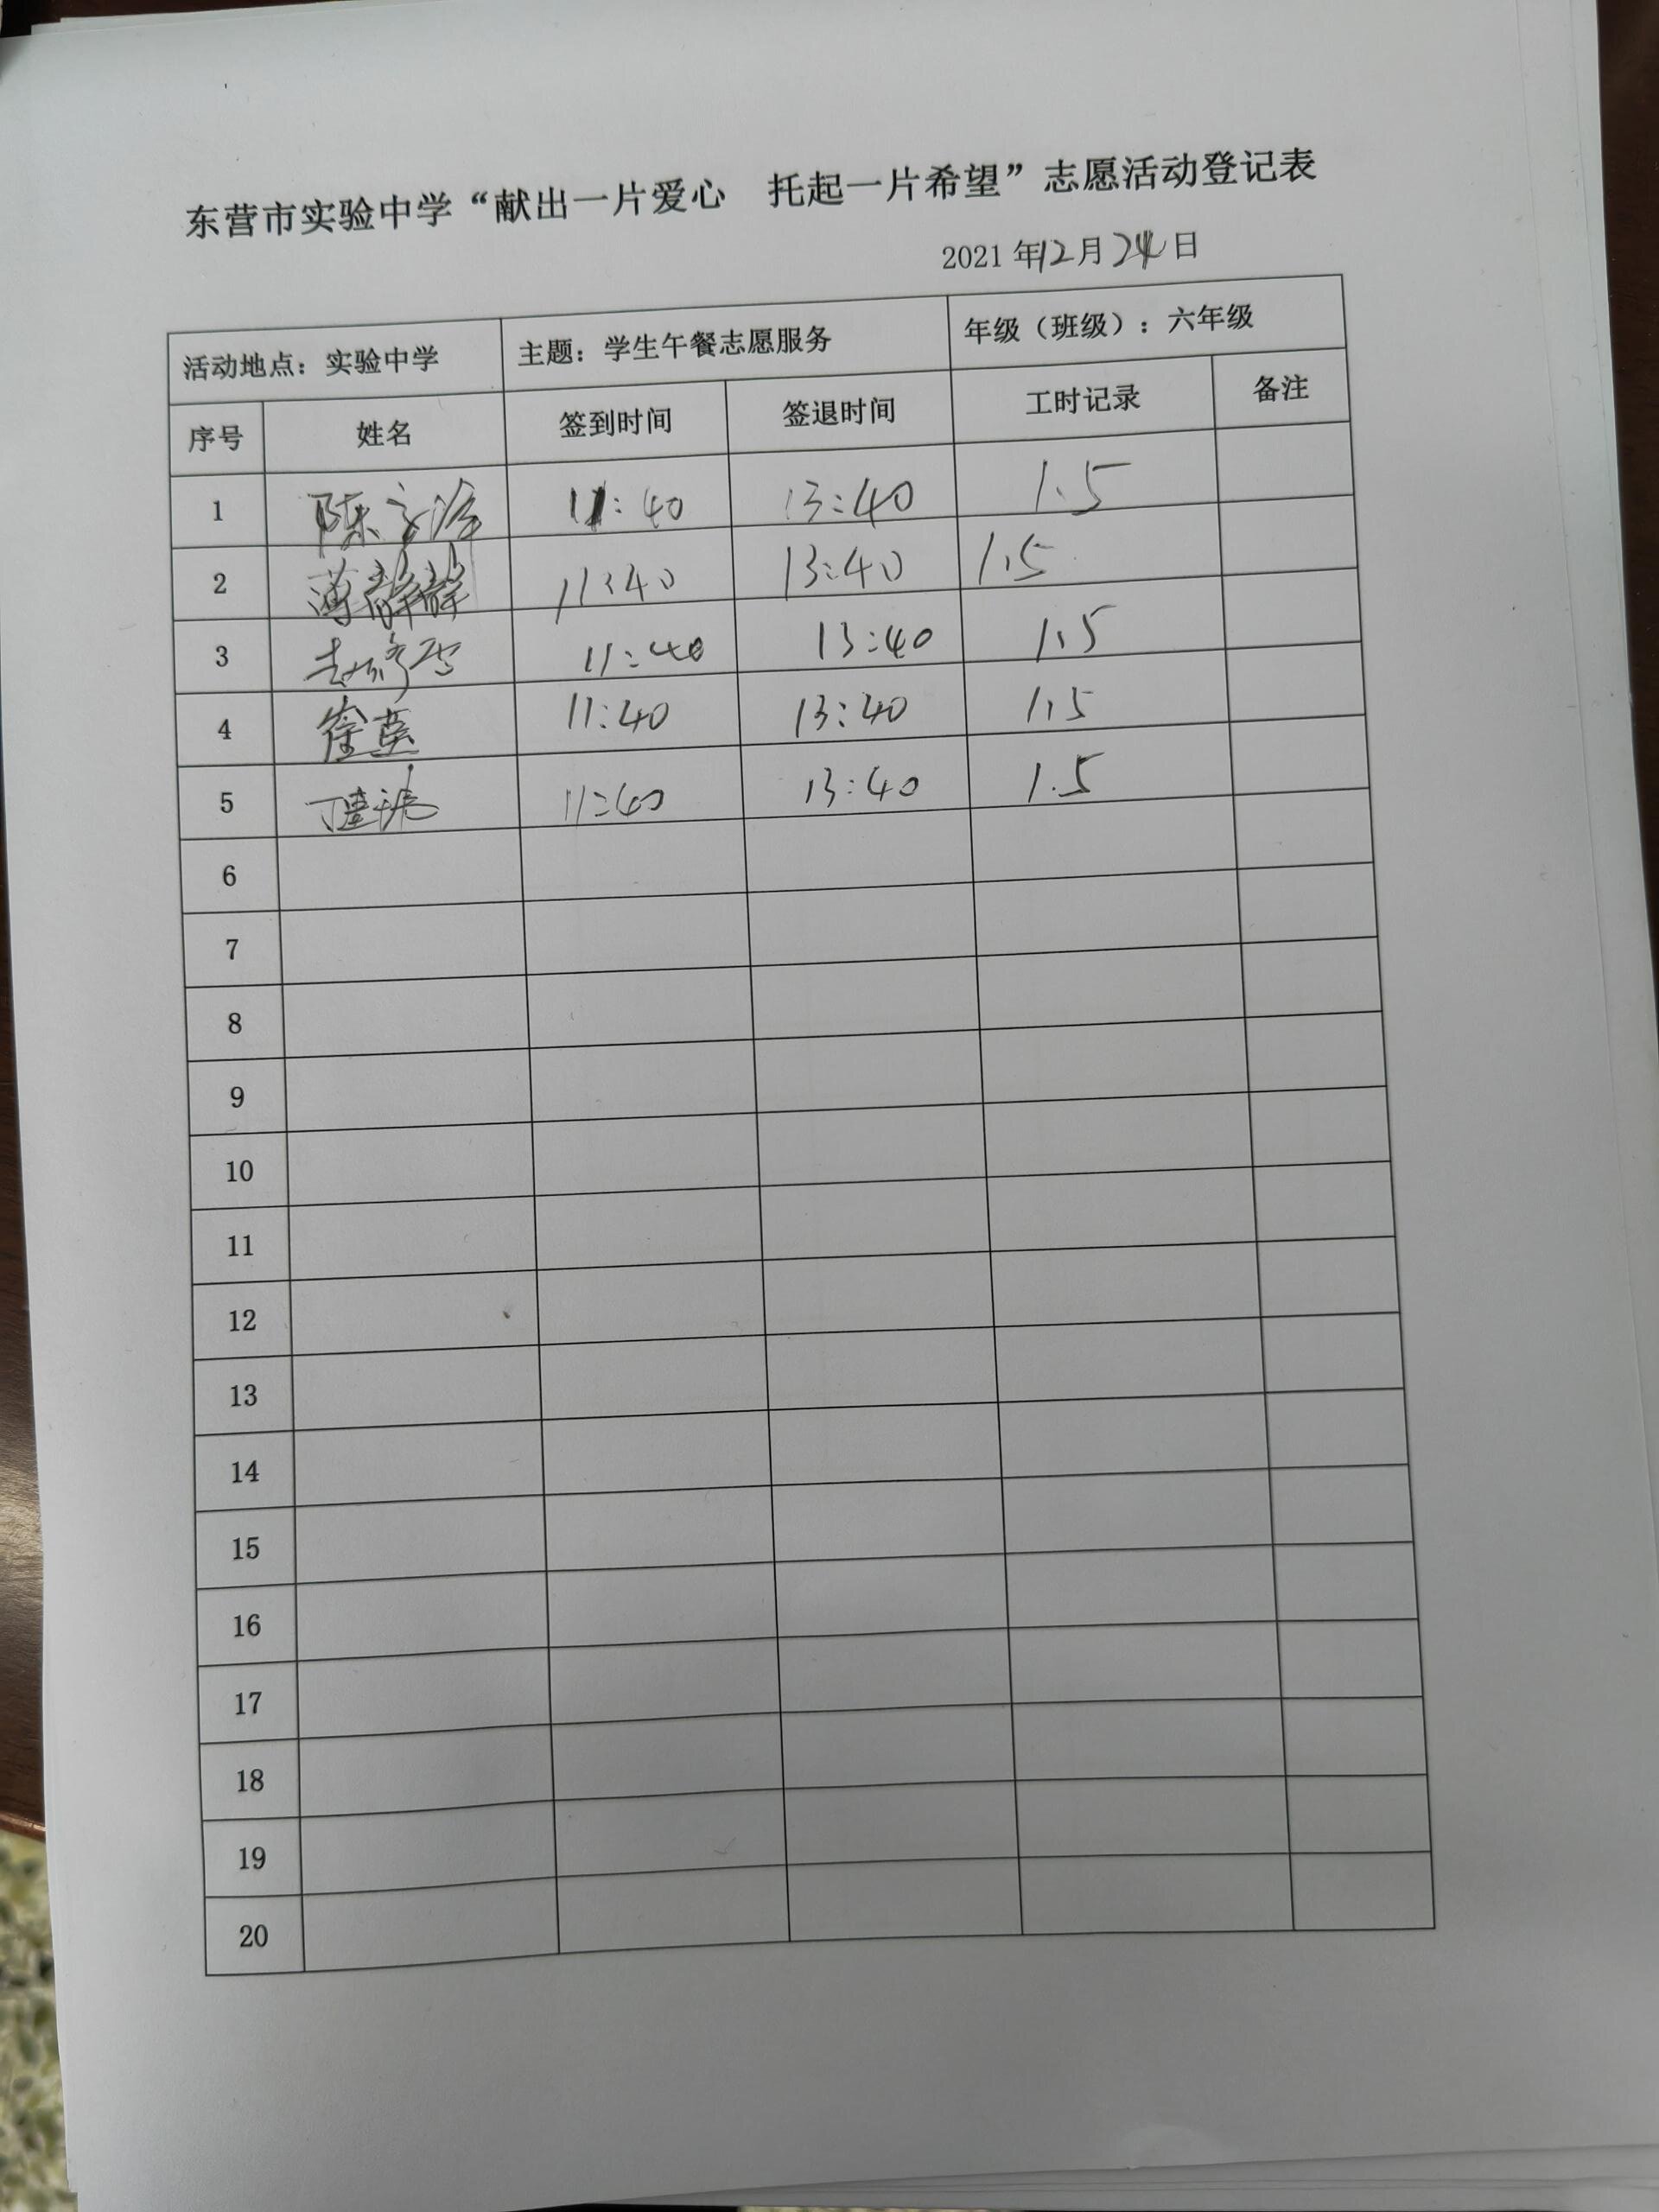 东营市实验中学“献出一片爱心 托起一片希望”志愿活动登记表
2021年12月24日
活动地点：实验中学 主题：学生午餐志愿服务 年级（班级）：六年级
序号 姓名 签到时间 签退时间 工时记录 备注
1 陈 11:40 13:40 1.5
2 薄静静 11:40 13:40 1.5
3 11:40 13:40 1.5
4 徐英 11:40 13:40 1.5
5 11:40 13:40 1.5
6
7
8
9
10
11
12
13
14
15
16
17
18
19
20